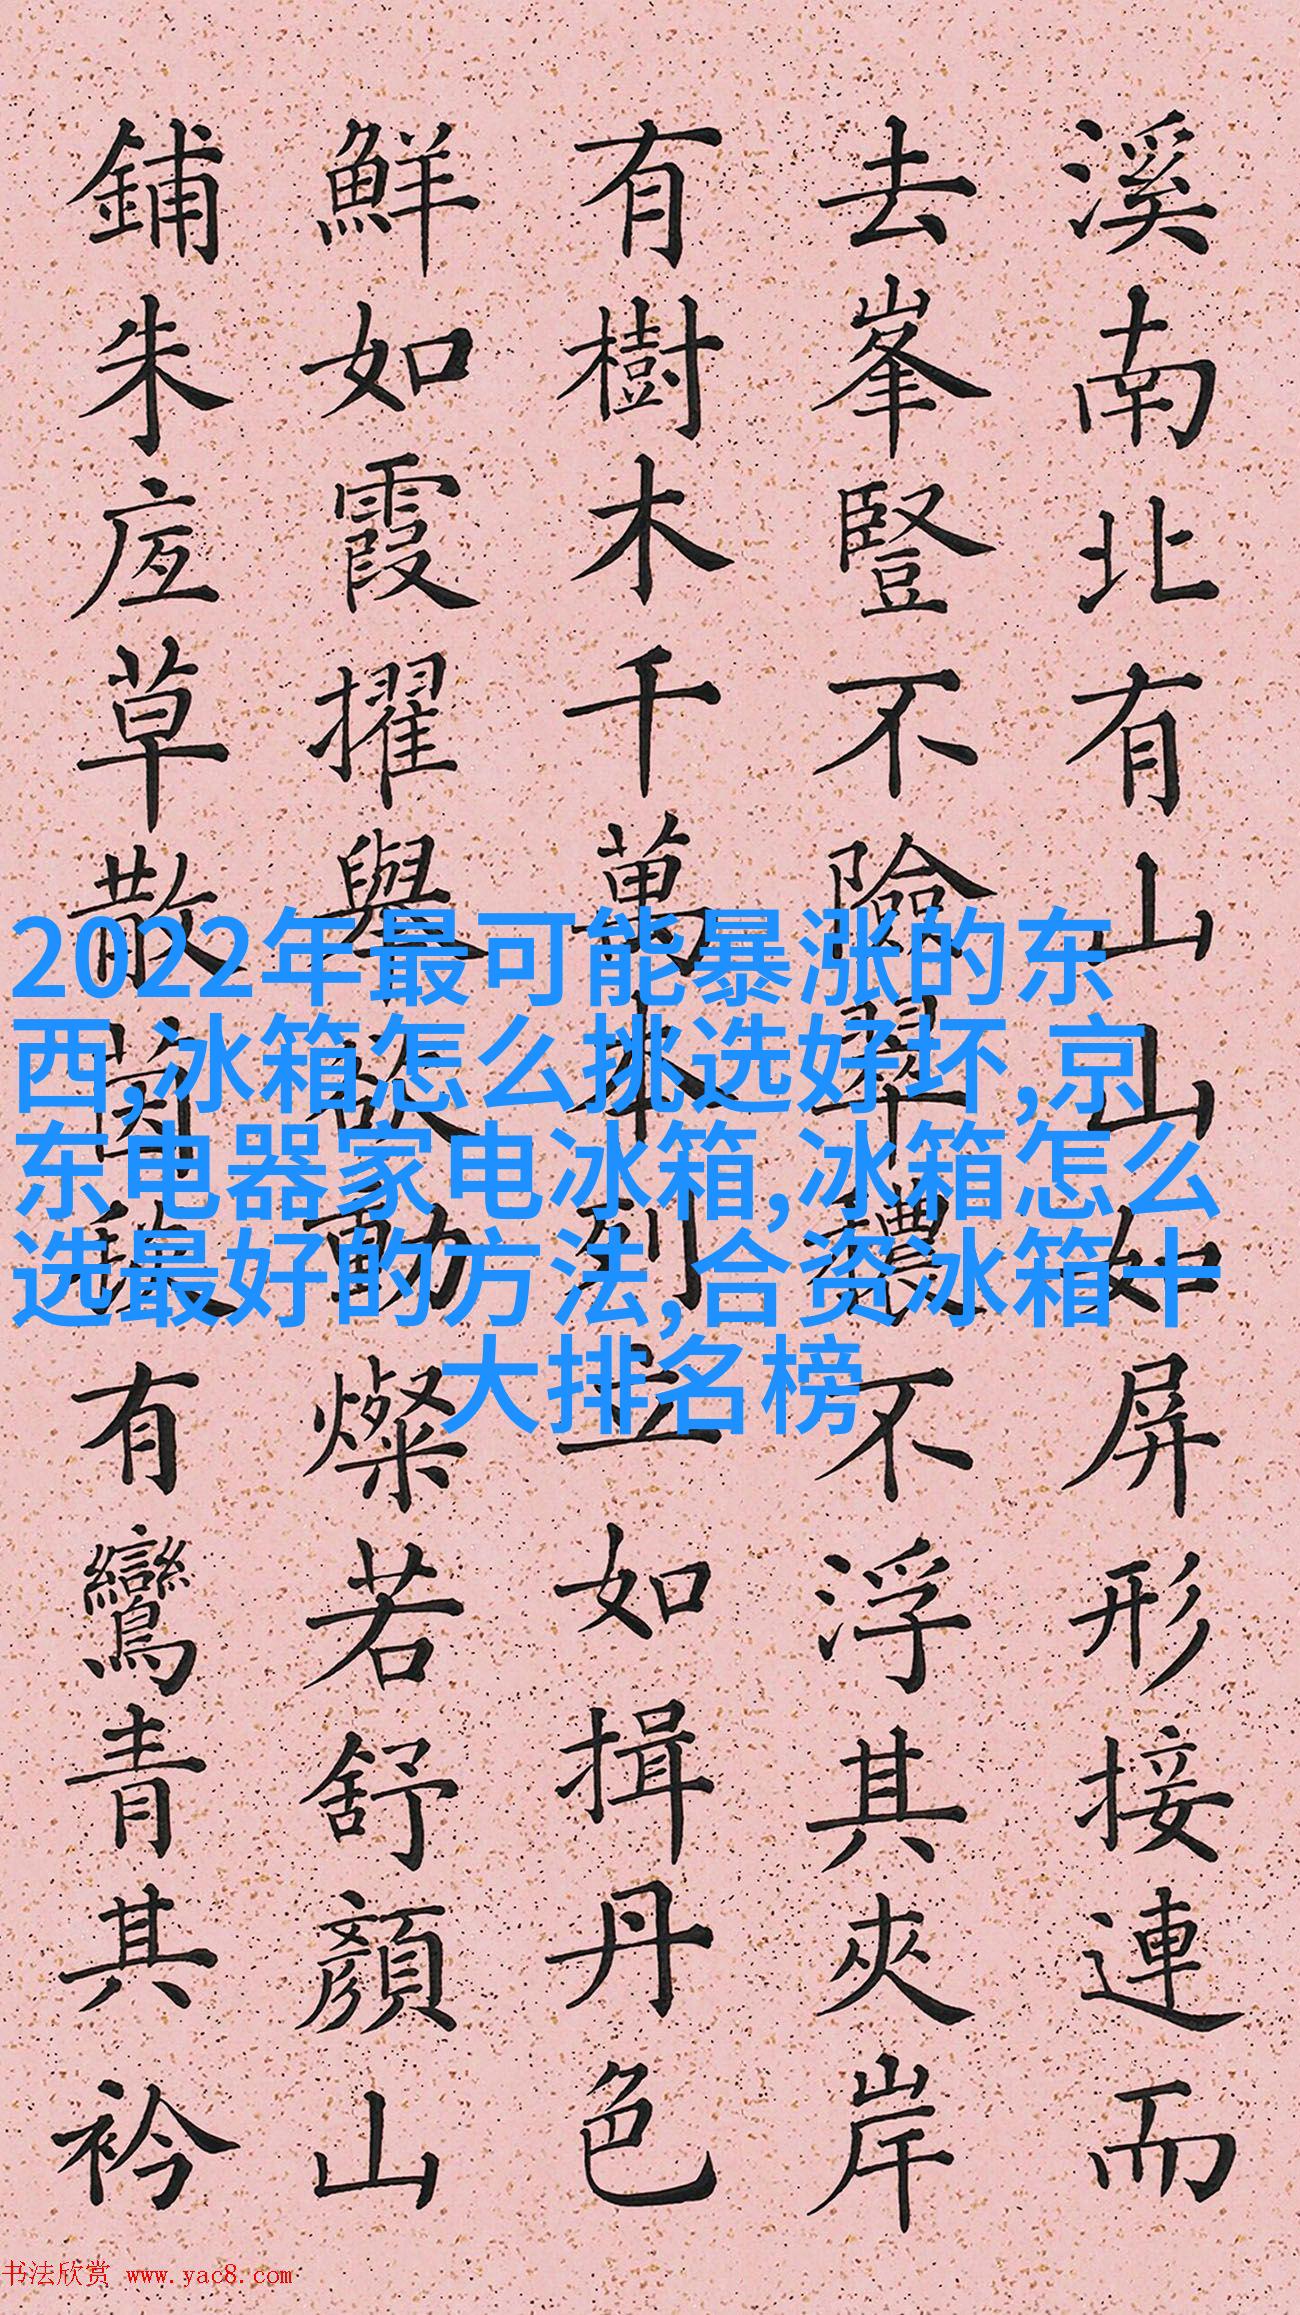 溪南北有山山如屏形接連而
去峯豎不險翠濃不浮其夾岸
有樹木千萬本列立如揖丹色
鮮如霞擢舉欲動燦若舒顏山
鋪朱底草散茵毯有鸞青其衿
2022年最可能暴涨的东
西,冰箱怎么挑选好坏,京
东电器家电冰箱,冰箱怎么
选最好的方法,合资冰箱十
大排名榜
书法欣赏 www.yac8.com